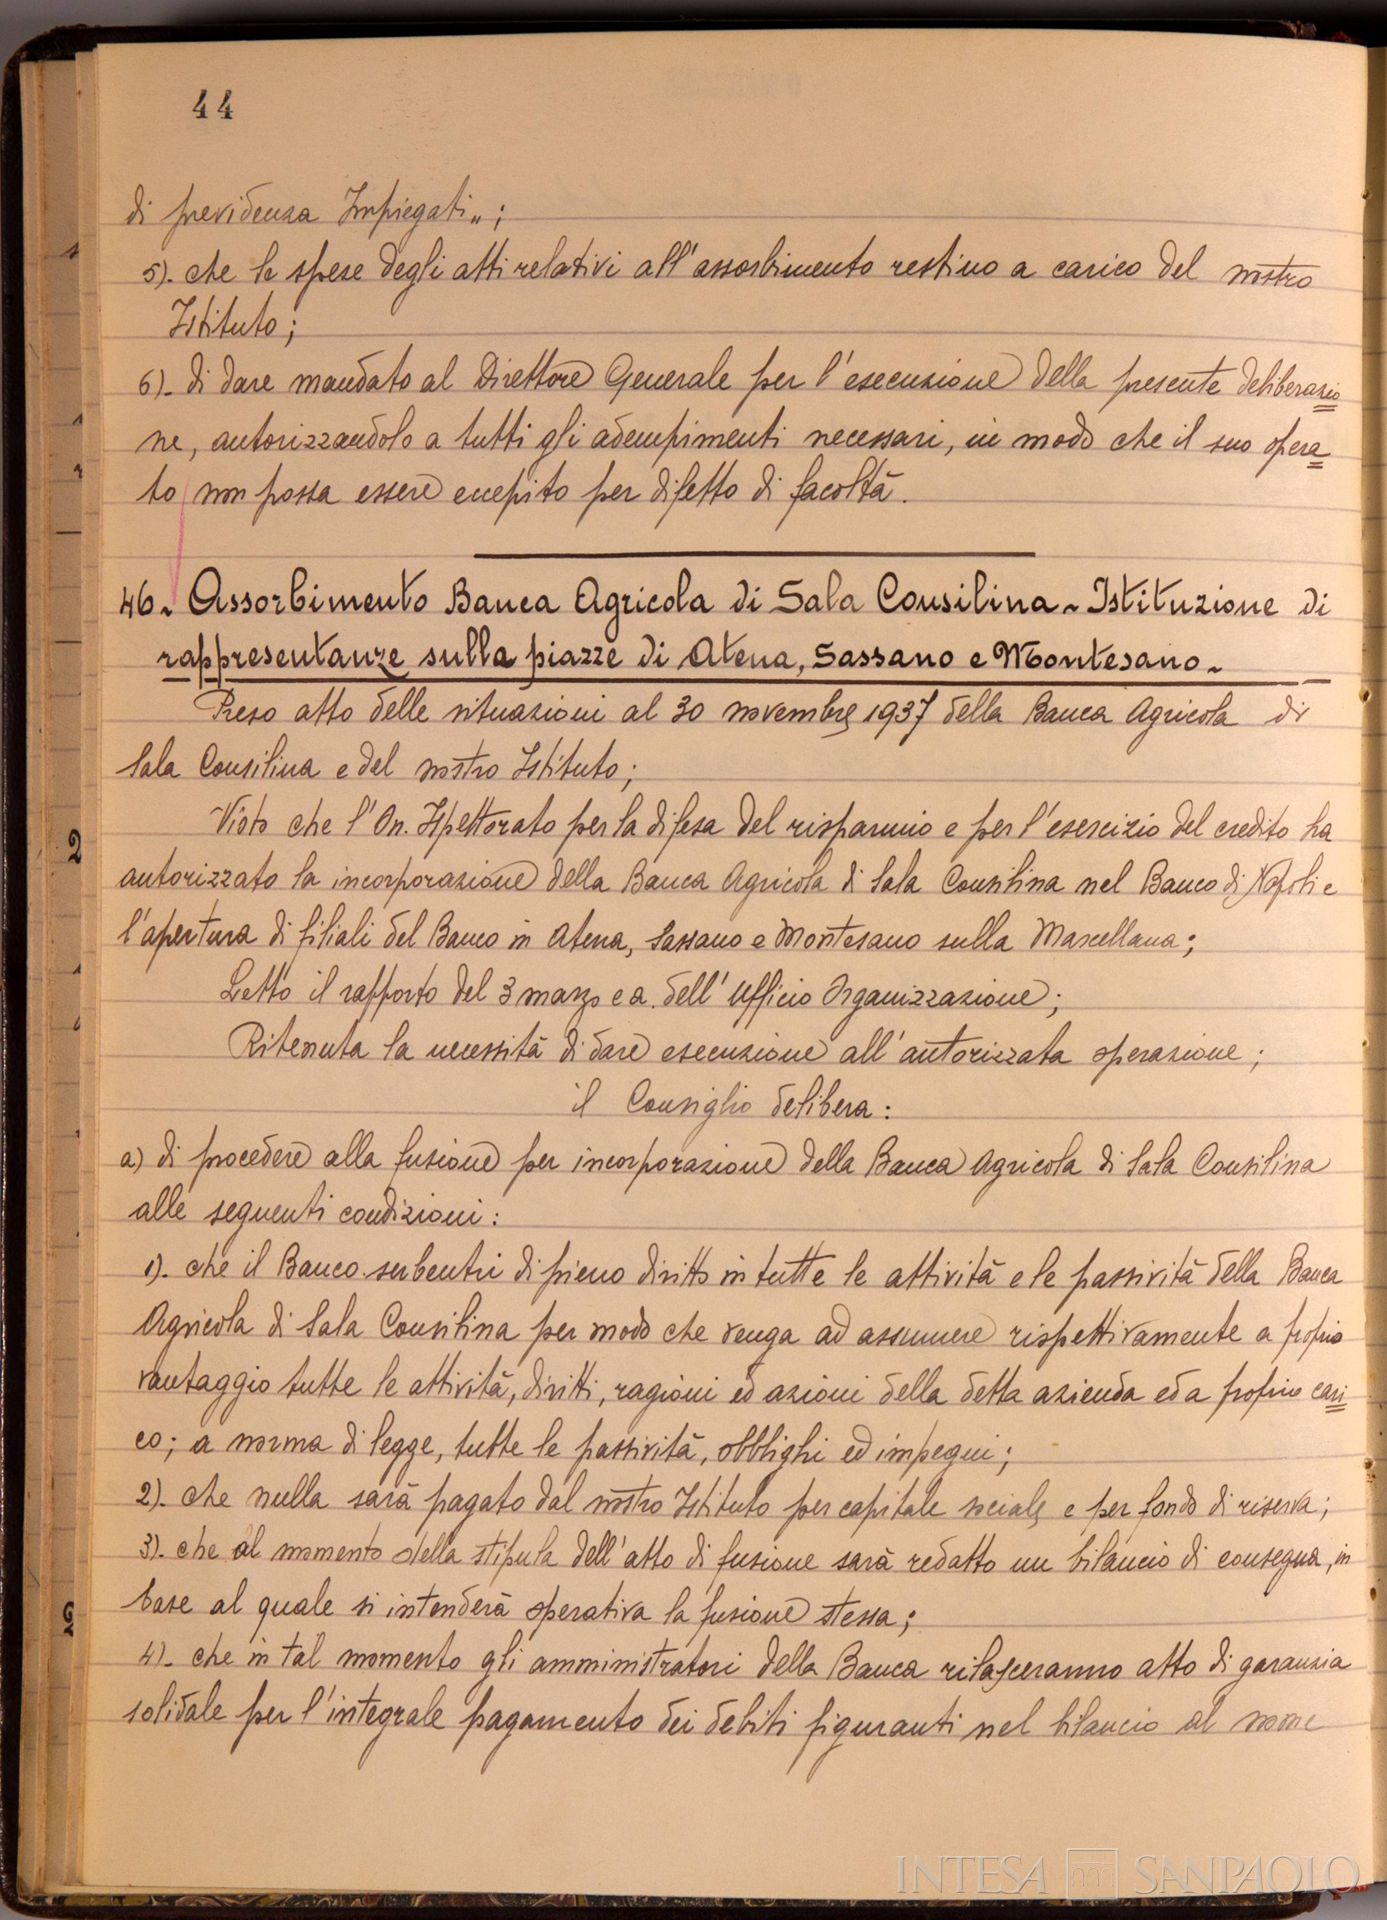 44
di previdenza Impiegati„;
5)- che le spese degli atti relativi all'assorbimento restino a carico del nostro
Istituto;
6)- di dare mandato al Direttore Generale per l'esecuzione della presente deliberazio
ne, autorizzandolo a tutti gli adempimenti necessari, in modo che il suo opera
to non possa essere eccepito per difetto di facoltà.
46- Assorbimento Banca Agricola di Sala Consilina - Istituzione di
rappresentanze sulla piazze di Atena, Sassano e Montesano-
Preso atto delle situazioni al 30 novembre 1937 della Banca Agricola di
Sala Consilina e del nostro Istituto;
Visto che l'On. Ispettorato per la difesa del risparmio e per l'esercizio del credito ha
autorizzato la incorporazione della Banca Agricola di Sala Consilina nel Banco di Napoli e
l'apertura di filiali del Banco in Atena, Sassano e Montesano sulla Marcellana;
Letto il rapporto del 3 marzo c.a. dell'Ufficio Organizzazione;
Ritenuta la necessità di dare esecuzione all'autorizzata operazione;
il Consiglio delibera:
a) di procedere alla fusione per incorporazione della Banca Agricola di Sala Consilina
alle seguenti condizioni:
1)- che il Banco subentri di pieno diritto in tutte le attività e le passività della Banca
Agricola di Sala Consilina per modo che venga ad assumere rispettivamente a proprio
vantaggio tutte le attività, diritti, ragioni ed azioni della detta azienda ed a proprio cari
co; a norma di legge, tutte le passività, obblighi ed impegni;
2)- che nulla sarà pagato dal nostro Istituto per capitale sociale e per fondo di riserva;
3)- che al momento della stipula dell'atto di fusione sarà redatto un bilancio di consegna, in
base al quale si intenderà operativa la fusione stessa;
4)- che in tal momento gli amministratori della Banca rilasceranno atto di garanzia
solidale per l'integrale pagamento dei debiti figuranti nel bilancio al nome
INTESA SANPAOLO